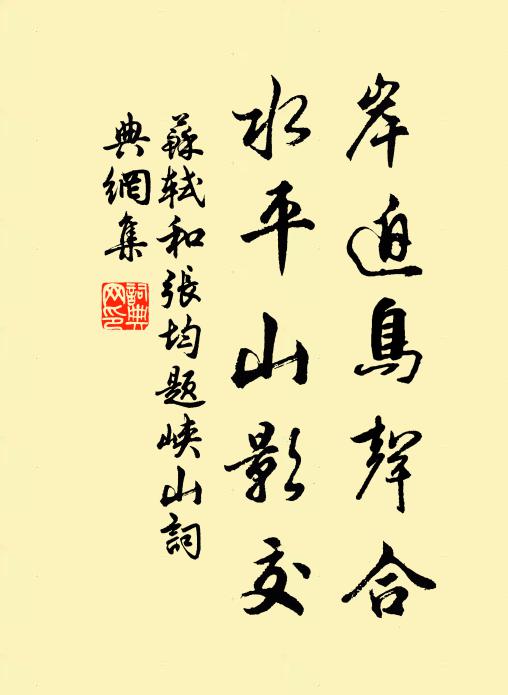 岸迫鳥聲合
水平山影交
蘇軾和張均題峽山詞
典網集
詞典網印